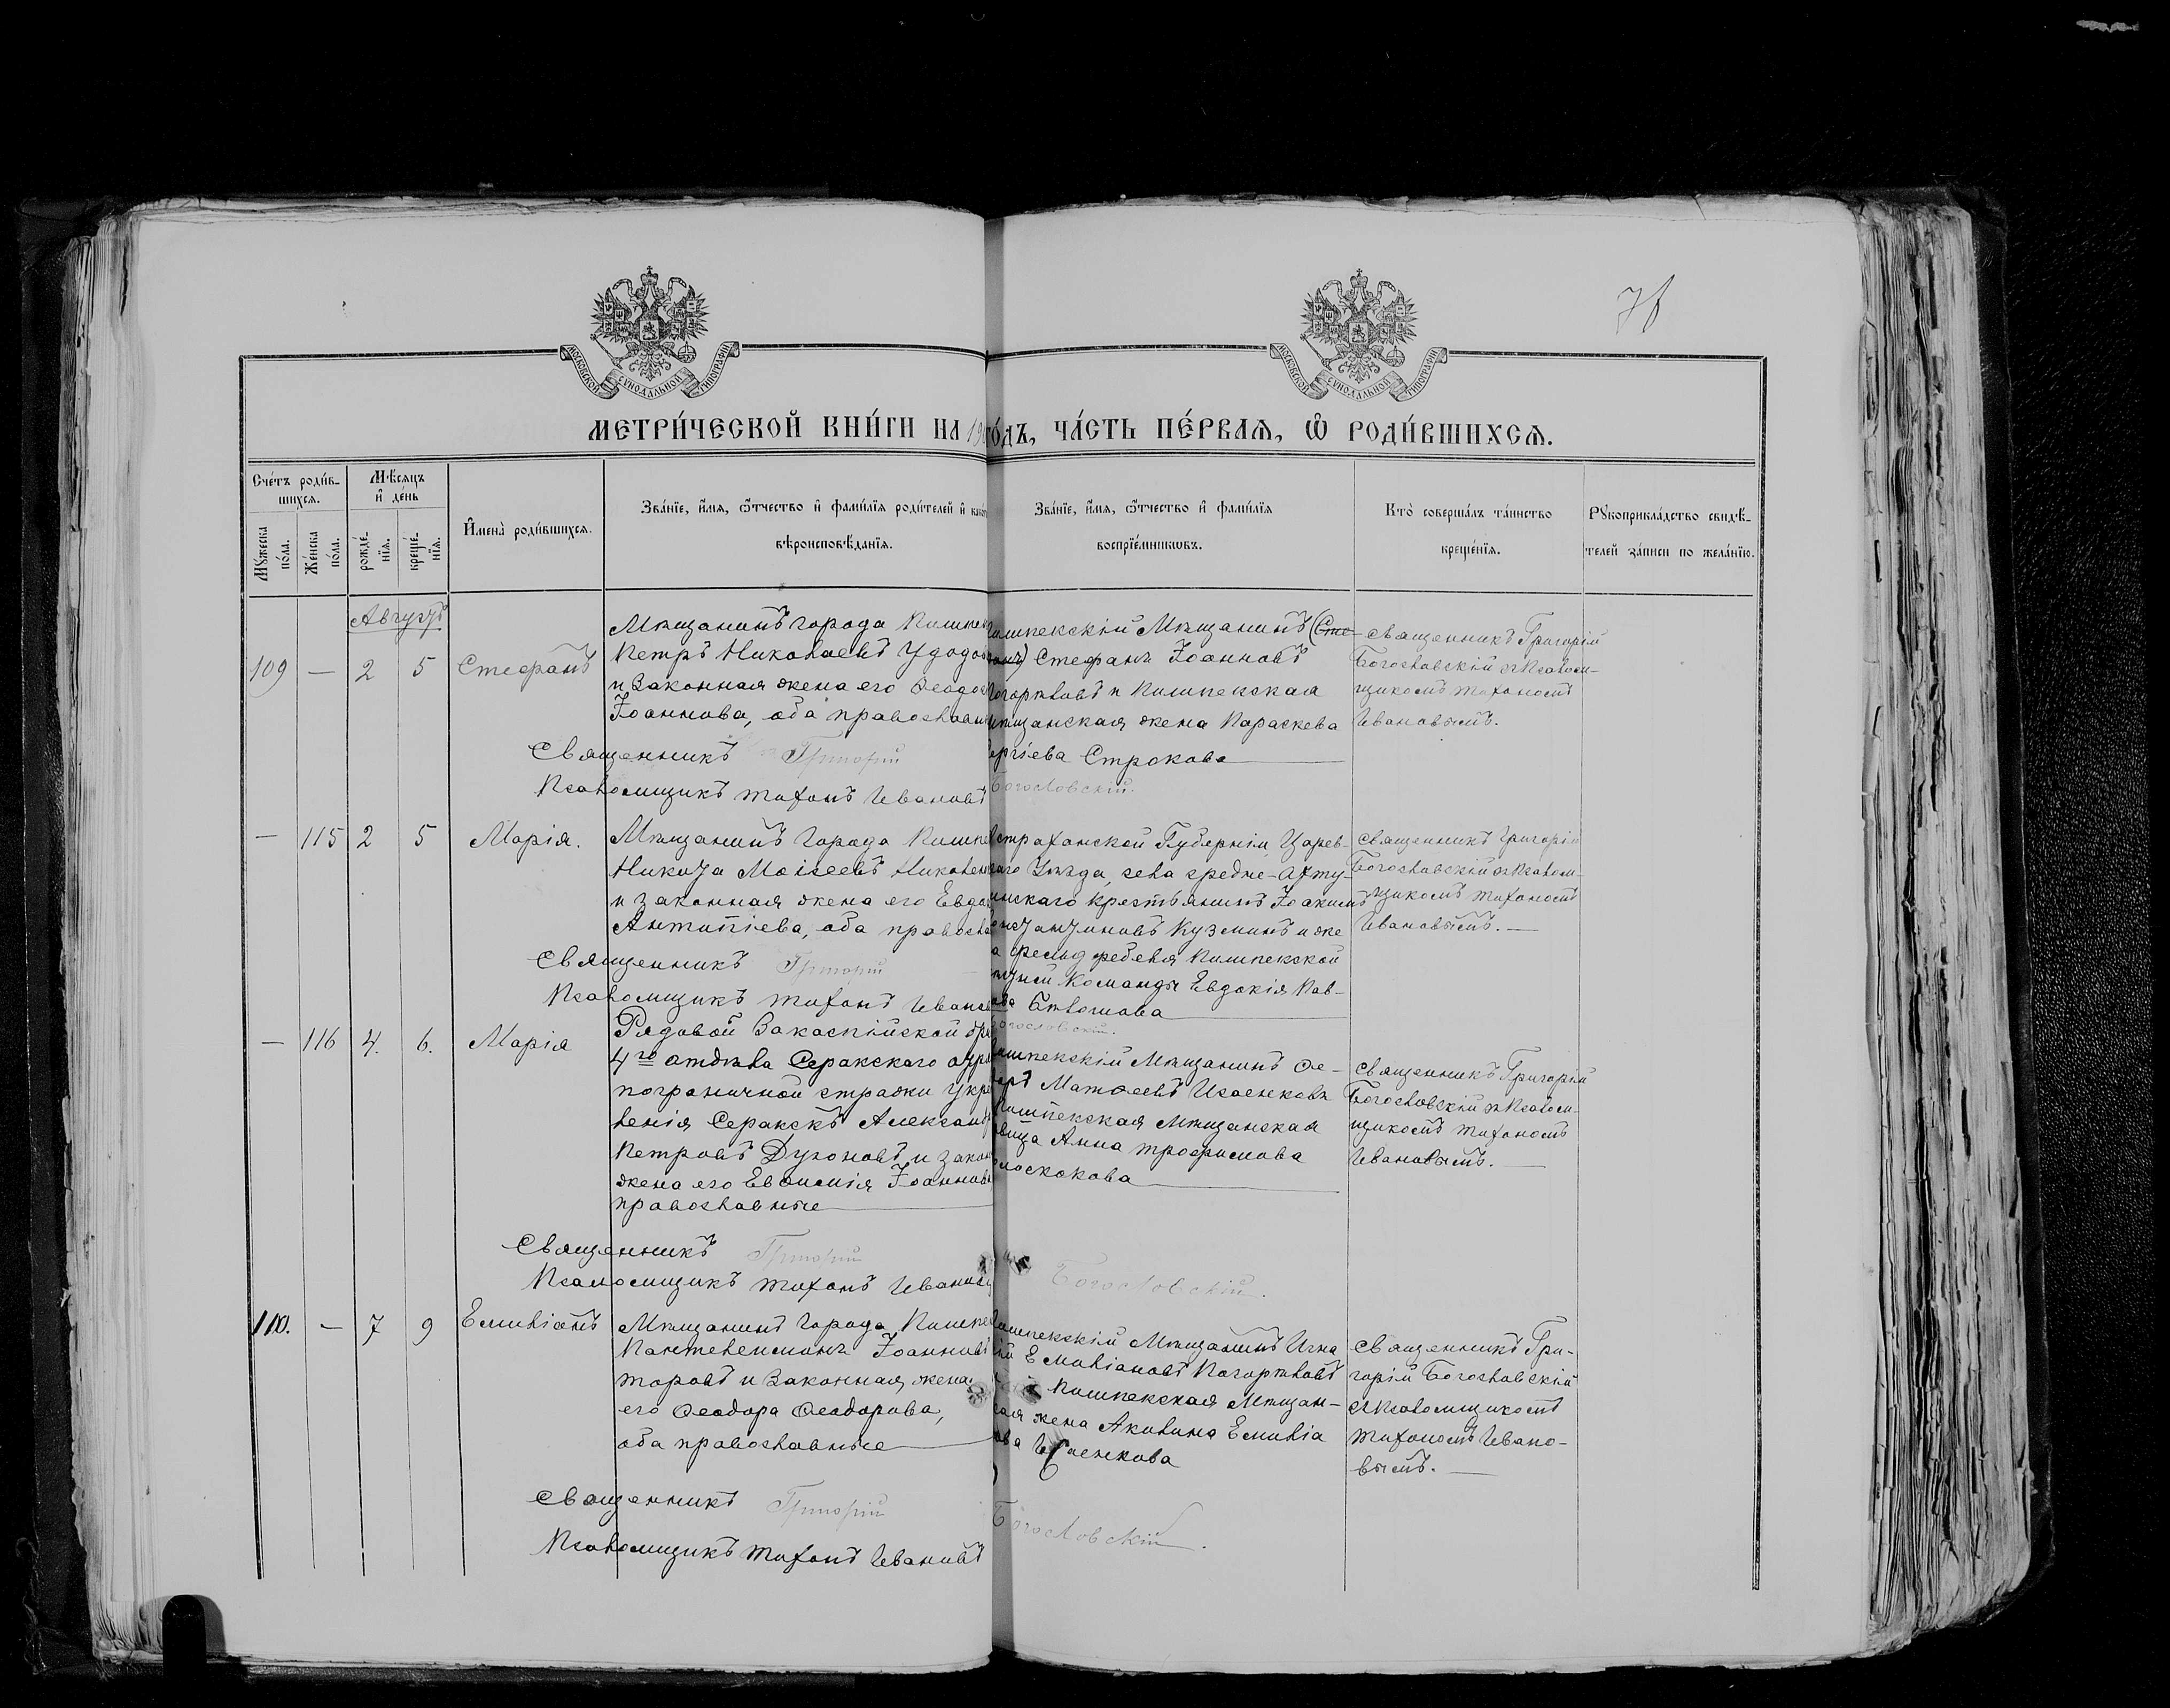 78
МОСКОВСКОЙ СУНОДАЛЬНОЙ ТИПОГРАФІИ
МОСКОВСКОЙ СУНОДАЛЬНОЙ ТИПОГРАФІИ
МЕТРИ́ЧЕСКОЙ КНИ́ГИ НА 190 го́дъ, ЧА́СТЬ ПЕ́РВАѦ, Ѡ҆ РОДИ́ВШИХСѦ.
Сче́тъ роди́в-
шихсѧ.
Мꙋ́жеска по́ла.
Же́нска по́ла.
Мѣ́сѧцъ
и҆ де́нь
рожде́-
нїѧ.
креще́-
нїѧ.
И҆мена̀ роди́вшихсѧ.
Зва́нїе, и҆́мѧ, ѻ҆́тчество и҆ фами́лїѧ роди́телей и҆ како́
вѣроисповѣ́данїѧ.
Зва́нїе, и҆́мѧ, ѻ҆́тчество и҆ фами́лїѧ
воспрїе́мникѡвъ.
Кто̀ соверша́лъ та́инство
креще́нїѧ.
Рꙋкоприкла́дство свидѣ́-
телей за́писи по жела́нїю.
Августъ
109 — 2 5 Стефанъ
Мѣщанинъ города Пишпек
Петръ Николаевъ Удодов
и законная жена его Феодос
Іоаннова, оба православн
ишпекскій Мѣщанинъ (Сте-
фанъ) Стефанъ Іоанновъ
Погорѣловъ и Пишпекская
мѣщанская жена Параскева
ергіева Строкова
Священникъ Григорій
Богословскій съ Псалом-
щикомъ Тихономъ
Ивановымъ.
Священникъ Григорій Богословскій.
Псаломщикъ Тихонъ Ивановъ
— 115 2 5 Марія.
Мѣщанинъ города Пишпе
Никита Моісеевъ Николен
и законная жена его Евдо
Антипіева, оба правосла
Астраханской Губерніи, Царев-
скаго Уѣзда, села Средне-Ахту-
инскаго крестьянинъ Іоакимъ
Кузминъ и же
а фельдфебеля Пишпекской
тной Команды Евдокія Пав-
лова
Священникъ Григорій
Богословскій съ Псалом-
щикомъ Тихономъ
Ивановымъ. —
Священникъ Григорій Богословскій.
Псаломщикъ Тихонъ Иванов
— 116 4. 6. Марія
Рядовой Закаспійской бри
4го отдѣла Серакскаго отря
пограничной стражи укрѣ
ленія Серакскъ Александ
Петровъ Духоновъ и закон
жена его Евфимія Іоаннов
православные
ишпекскій Мѣщанинъ Фе-
доръ Матфеевъ Исаенковъ
Пишпекская мѣщанская
вица Анна Трофимова
Священникъ Григорій
Богословскій съ Псалом-
щикомъ Тихономъ
Ивановымъ. —
Священникъ Григорій Богословскій.
Псаломщикъ Тихонъ Иванов
110. — 7 9 Емиліанъ
Мѣщанинъ города Пишпе
Пантелеимонъ Іоанновъ
торовъ и законная жена
его Феодора Феодорова,
оба православные
ишпекскій Мѣщанинъ Игна
ій Емиліановъ Погорѣловъ
Пишпекская Мѣщан-
ская жена Акилина Емиліа
ова Исаенкова
Священникъ Гри-
горій Богословскій
съ Псаломщикомъ
Тихономъ Ивано-
вымъ. —
Священникъ Григорій Богословскій.
Псаломщикъ Тихонъ Ивановъ